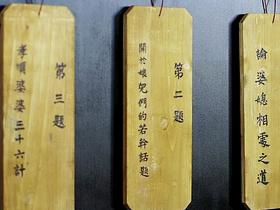 論婆媳相處之道
第二題
關於娘兒們的若幹話題
第三題
孝順婆婆三十六計